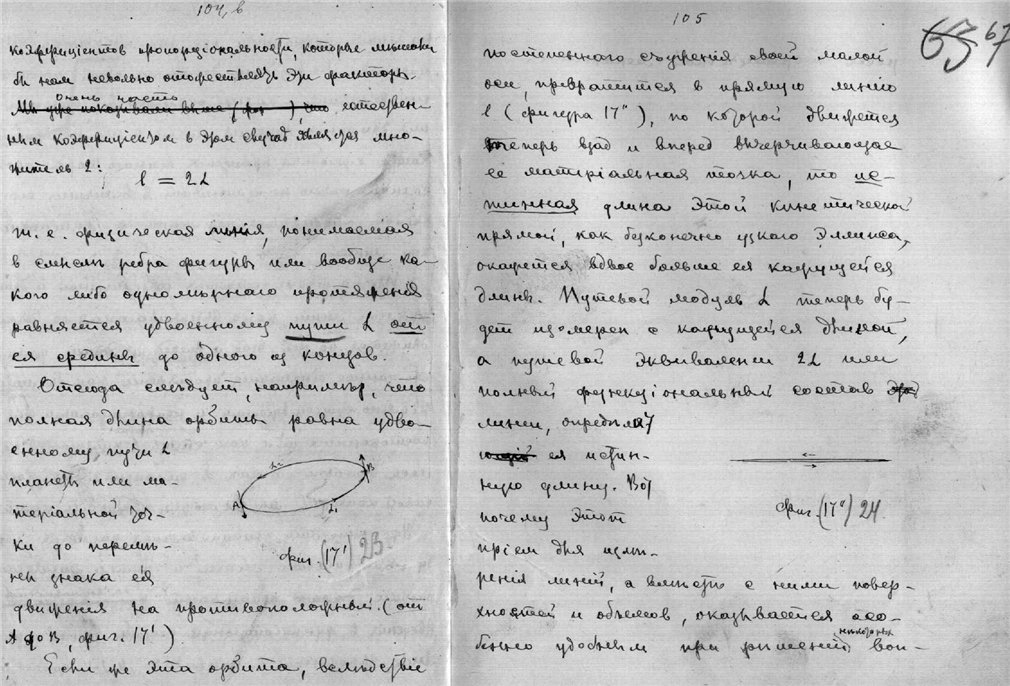 104, в
коэффицiентов пропорцiональности, которые мы
бы нам невольно отожествлять эти факторы.
очень часто
Мы уже показывали выше ( ), что естествен-
ным коэффицiентом в этом случаѣ является мно-
житель 2:
l = 2L
т. е. физическая линiя, понимаемая
в смыслѣ ребра фигуры или вообще ка-
кого либо одномѣрнаго протяженiя
равняется удвоенному пути L от
ея средины до одного из концов.
Отсюда слѣдует, напримѣр, что
полная длина орбиты равна удво-
енному пути L
планеты или ма-
терiальной точ-
ки до перемѣ-
ны знака ея
движенiя на противоположный (от
А до В, фиг. 17')
Если же эта орбита, вслѣдствiе
A
B
L
L
фиг. (17') 23.
105
63 67
постепеннаго съуженiя своей малой
оси, превратится в прямую линiю
l (фигура 17"), по которой движется
теперь взад и вперед вычерчивающая
ее матерiальная точка, то ис-
тинная длина этой кинетической
прямой, как безконечно узкаго эллипса,
окажется вдвое больше ея кажущейся
длины. Путевой модуль L теперь бу-
дет измѣрен с кажущейся длиной,
а путевой эквивалент 2L или
полный функцiональный состав этой
линiи, опредѣляет
ея истин-
ную длину. Вот
почему этот
прiем для измѣ-
ренiя линiй, а вмѣстѣ с ними повер-
хностей и объемов, оказывается осо-
некоторых
бенно удобным при рѣшенiи воп-
фиг. (17") 24